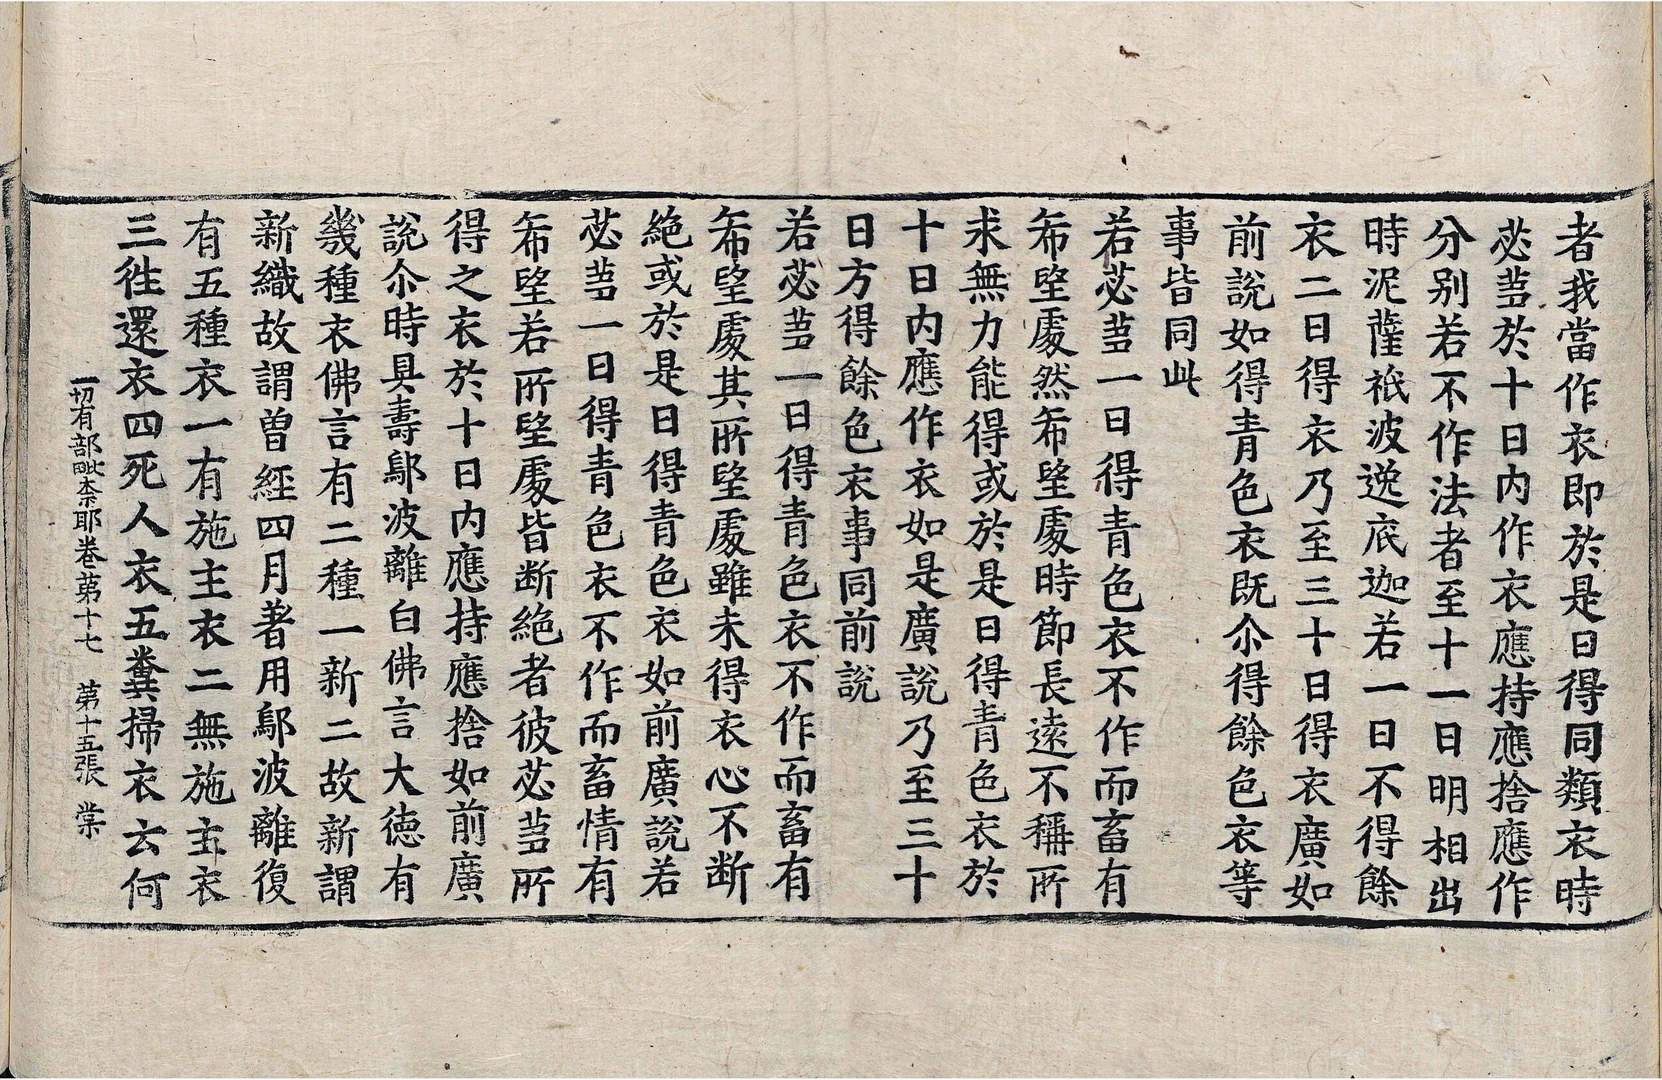 者我當作衣即於是日得同類衣時
苾蒭於十日内作衣應持應捨應作
分別若不作法者至十一日明相出
時泥薩祇波逸底迦若一日不得餘
衣二日得衣乃至三十日得衣廣如
前說如得青色衣既尒得餘色衣等
事皆同此
若苾蒭一日得青色衣不作而畜有
希望處然希望處時節長遠不稱所
求無力能得或於是日得青色衣於
十日内應作衣如是廣說乃至三十
日方得餘色衣事同前說
若苾蒭一日得青色衣不作而畜有
希望處其所望處雖未得衣心不断
絶或於是日得青色衣如前廣說若
苾蒭一日得青色衣不作而畜情有
希望若所望處皆断絶者彼苾蒭所
得之衣於十日内應持應捨如前廣
說尒時具壽鄔波離白佛言大德有
幾種衣佛言有二種一新二故新謂
新織故謂曽經四月著用鄔波離復
有五種衣一有施主衣二無施主衣
三徃還衣四死人衣五糞掃衣云何
一切有部毗柰耶卷苐十七　第十五張　棠